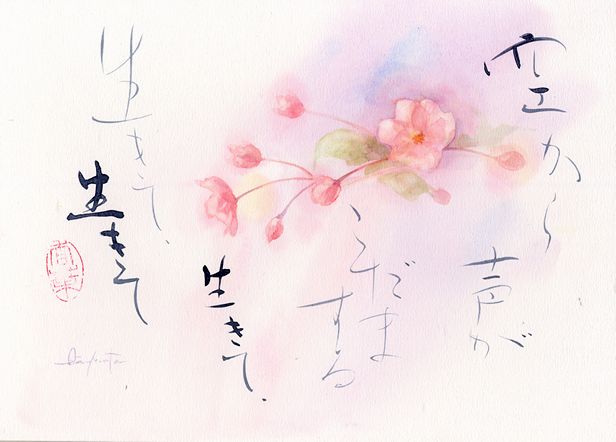 空から
声が
こだま
する
生きて、
生きて、
生きて